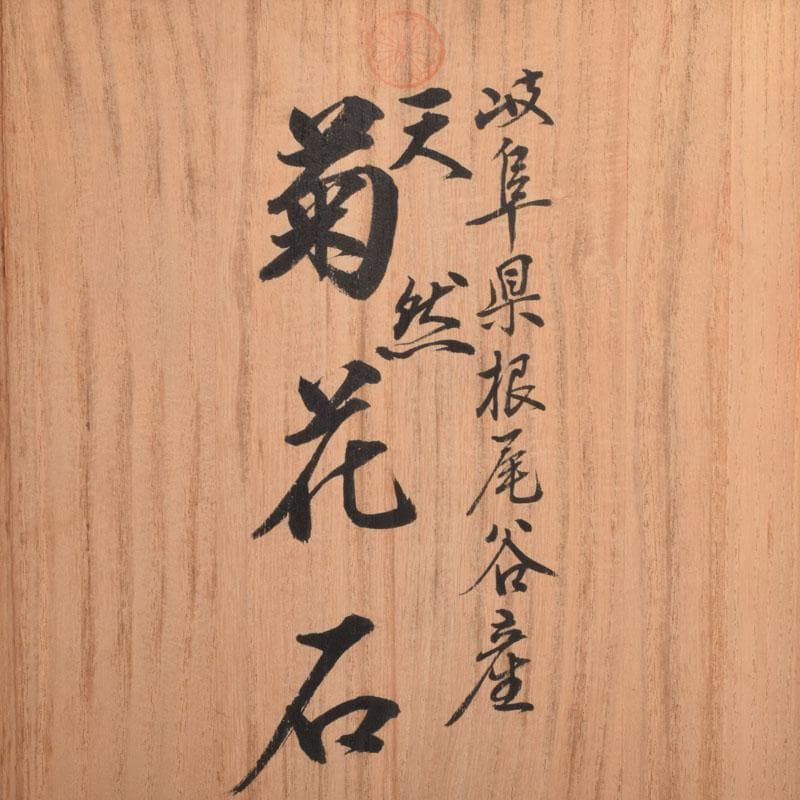 岐阜県根尾谷産
天然
菊花石